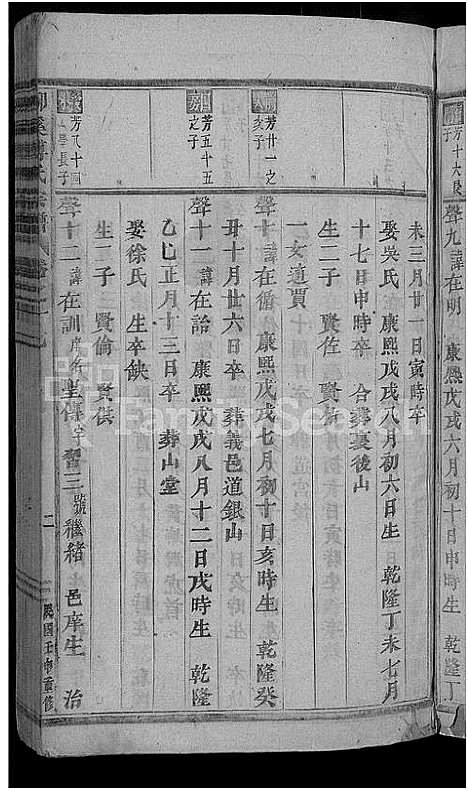 芳十六長子
聲九 諱在明 康熙戊戌六月初十日申時生 乾隆丁
未三月廿一日寅時卒
娶吳氏 康熙戊戌八月初六日生 乾隆丁未七月
十七日申時卒 合葬裏後山
生二子 賢佐
一女適賈
芳廿一之次子
聲十 諱在循 康熙戊戌七月初十日亥時生 乾隆癸
丑十月廿六日卒 葬義邑道銀山
芳五十五之子
聲十一 諱在詒 康熙戊戌八月十二日戌時生 乾隆
乙巳正月十三日卒 葬山堂
娶徐氏 生卒缺
生二子 賢倫 賢供
芳八十四長子
聲十二 諱在訓 庠名聖傳 字習三 號繼緒 邑庠生 治
二 民國壬申重修
FamilySearch